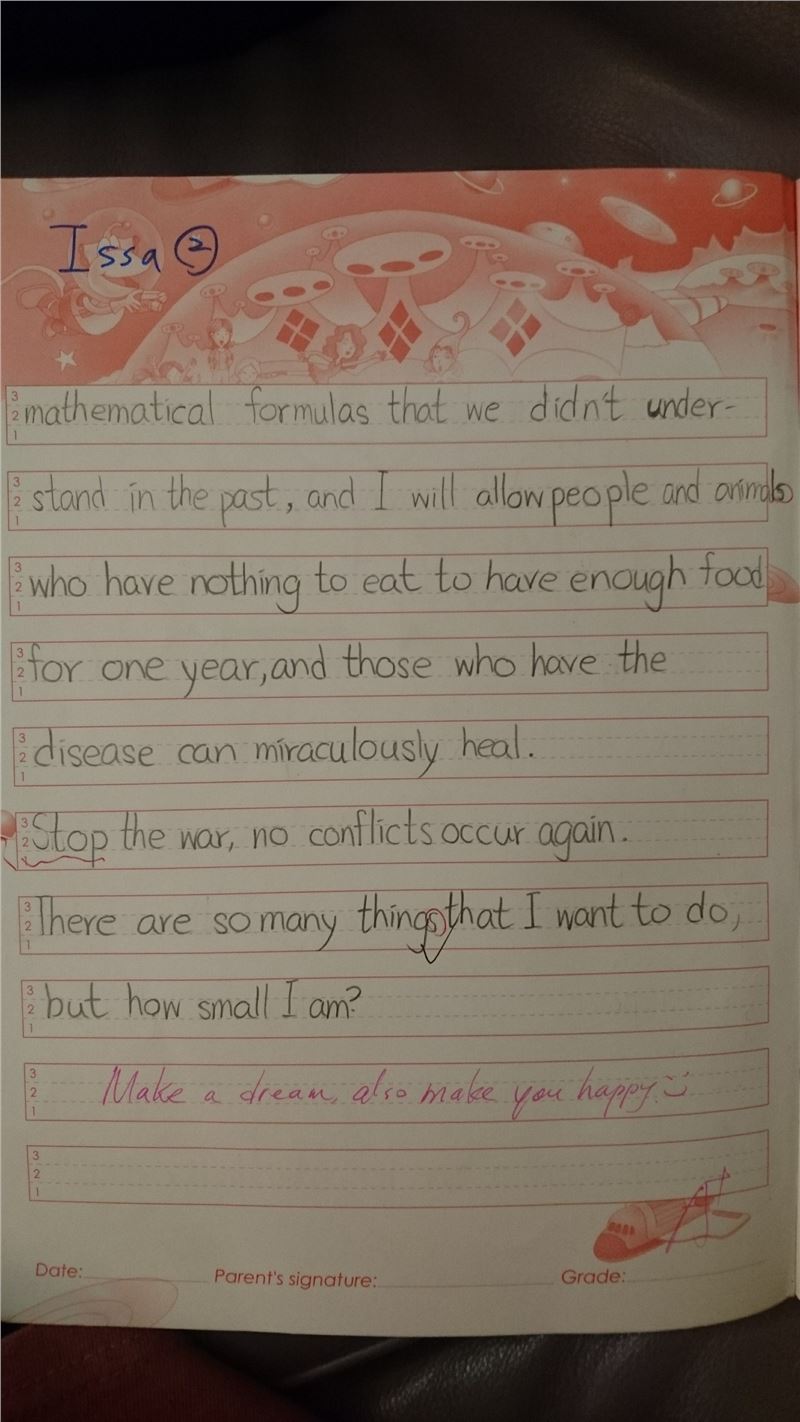 Issa ②
3
2
1
mathematical formulas that we didn't under-
3
2
1
stand in the past, and I will allow people and animals
3
2
1
who have nothing to eat to have enough food
3
2
1
for one year, and those who have the
3
2
1
disease can miraculously heal.
3
2
1
Stop the war, no conflicts occur again.
3
2
1
There are so many things that I want to do,
3
2
1
but how small I am?
3
2
1
Make a dream, also make you happy
3
2
1
Date:
Parent's signature:
Grade: